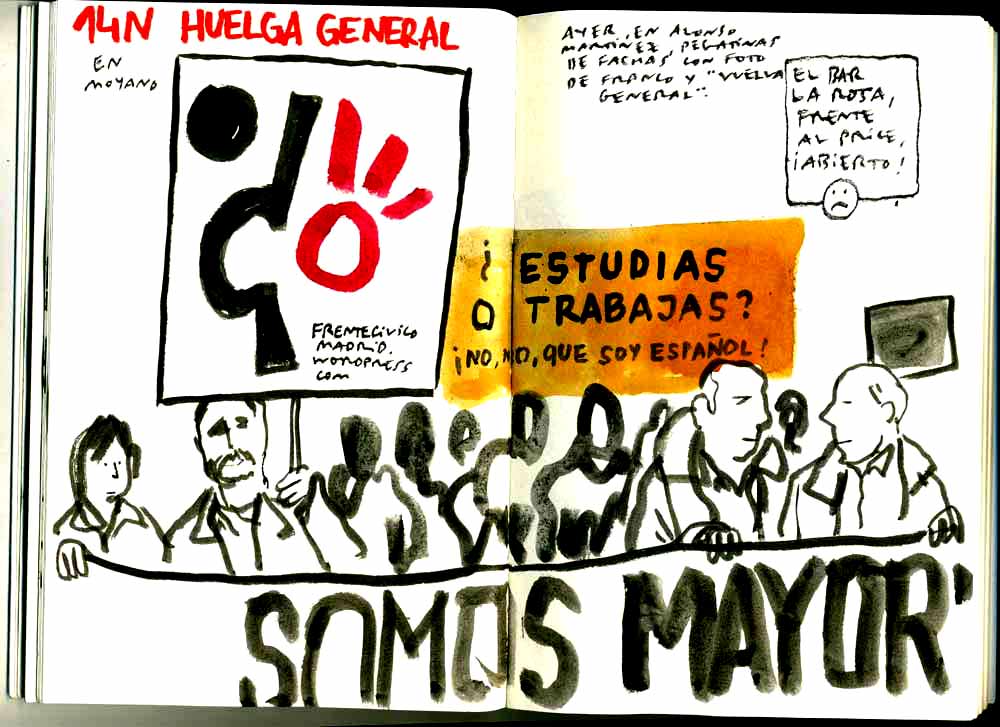 14N HUELGA GENERAL
EN
MOYANO
FRENTECIVICO
MADRID.
WORDPRESS
COM
AYER, EN ALONSO
MARTÍNEZ, PEGATINAS
DE FACHAS CON FOTO
DE FRANCO Y "VUELVA
GENERAL".
EL BAR
LA ROSA,
FRENTE
AL PRICE,
¡ABIERTO!
¿ESTUDIAS
O TRABAJAS?
¡NO, NO, QUE SOY ESPAÑOL!
SOMOS MAYOR